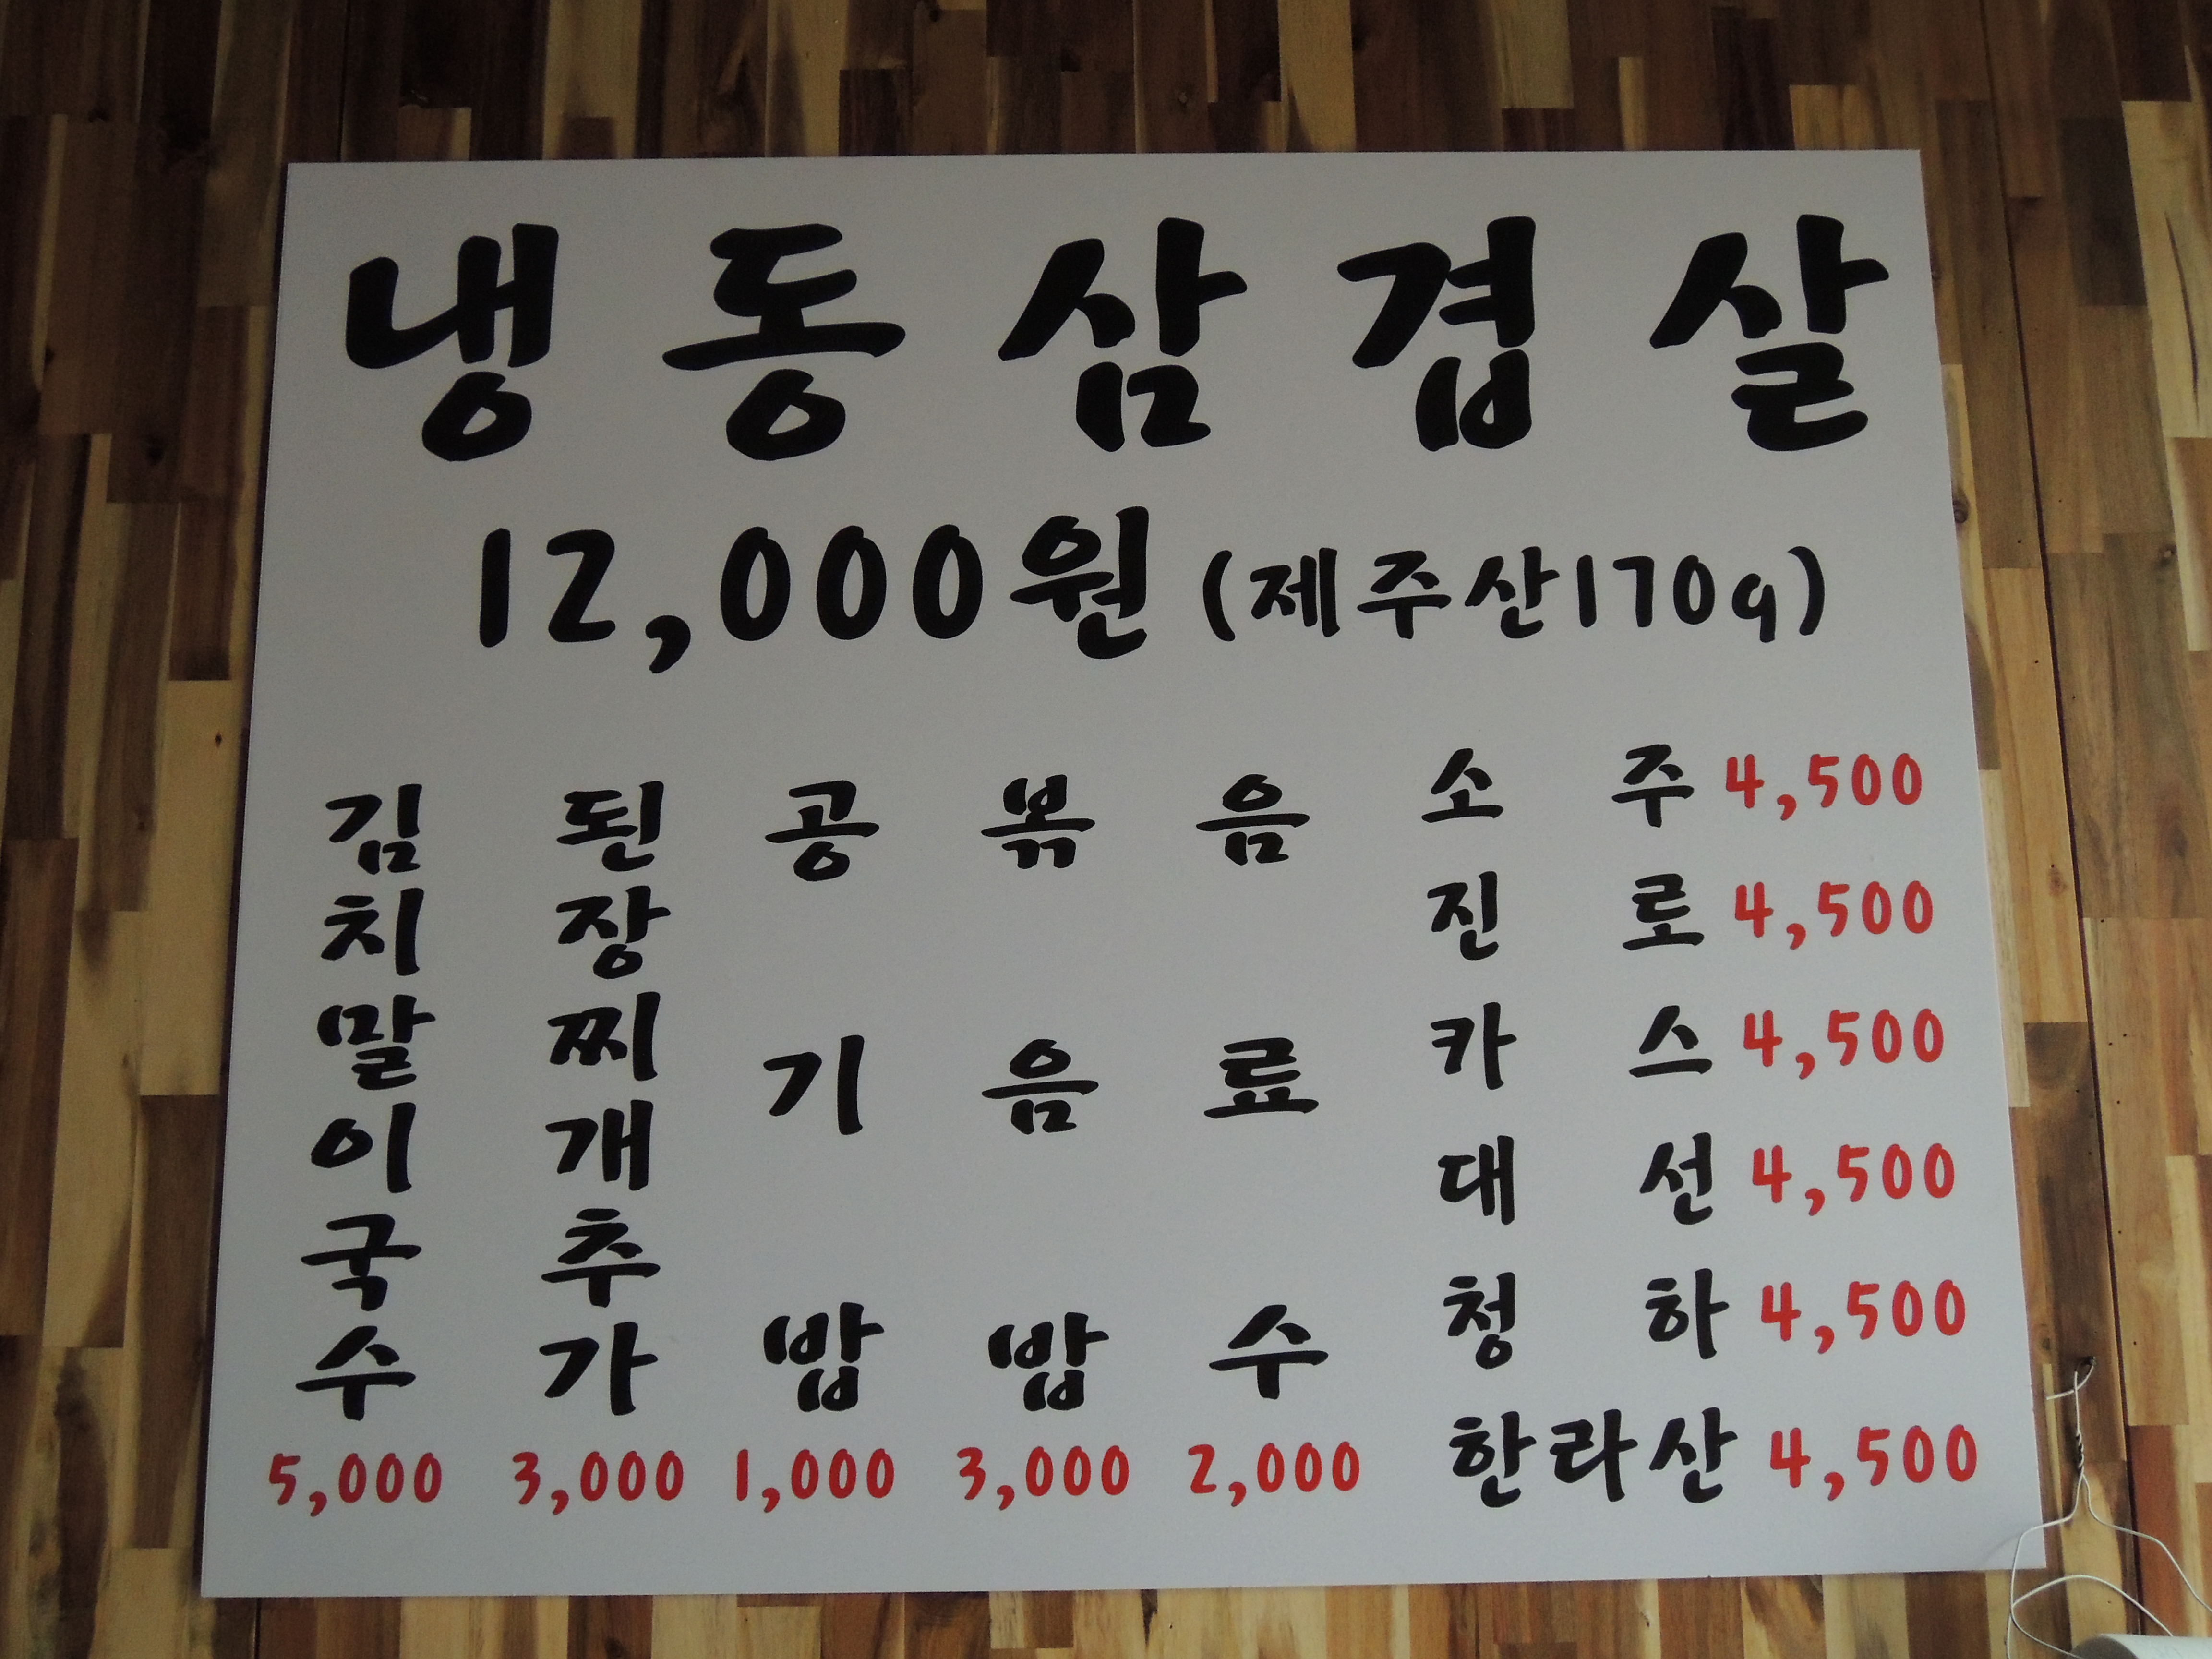 냉동삼겹살
12,000원 (제주산170g)
김치말이국수 5,000
된장찌개추가 3,000
공기밥 1,000
볶음밥 3,000
음료수 2,000
소주 4,500
진로 4,500
카스 4,500
대선 4,500
청하 4,500
한라산 4,500